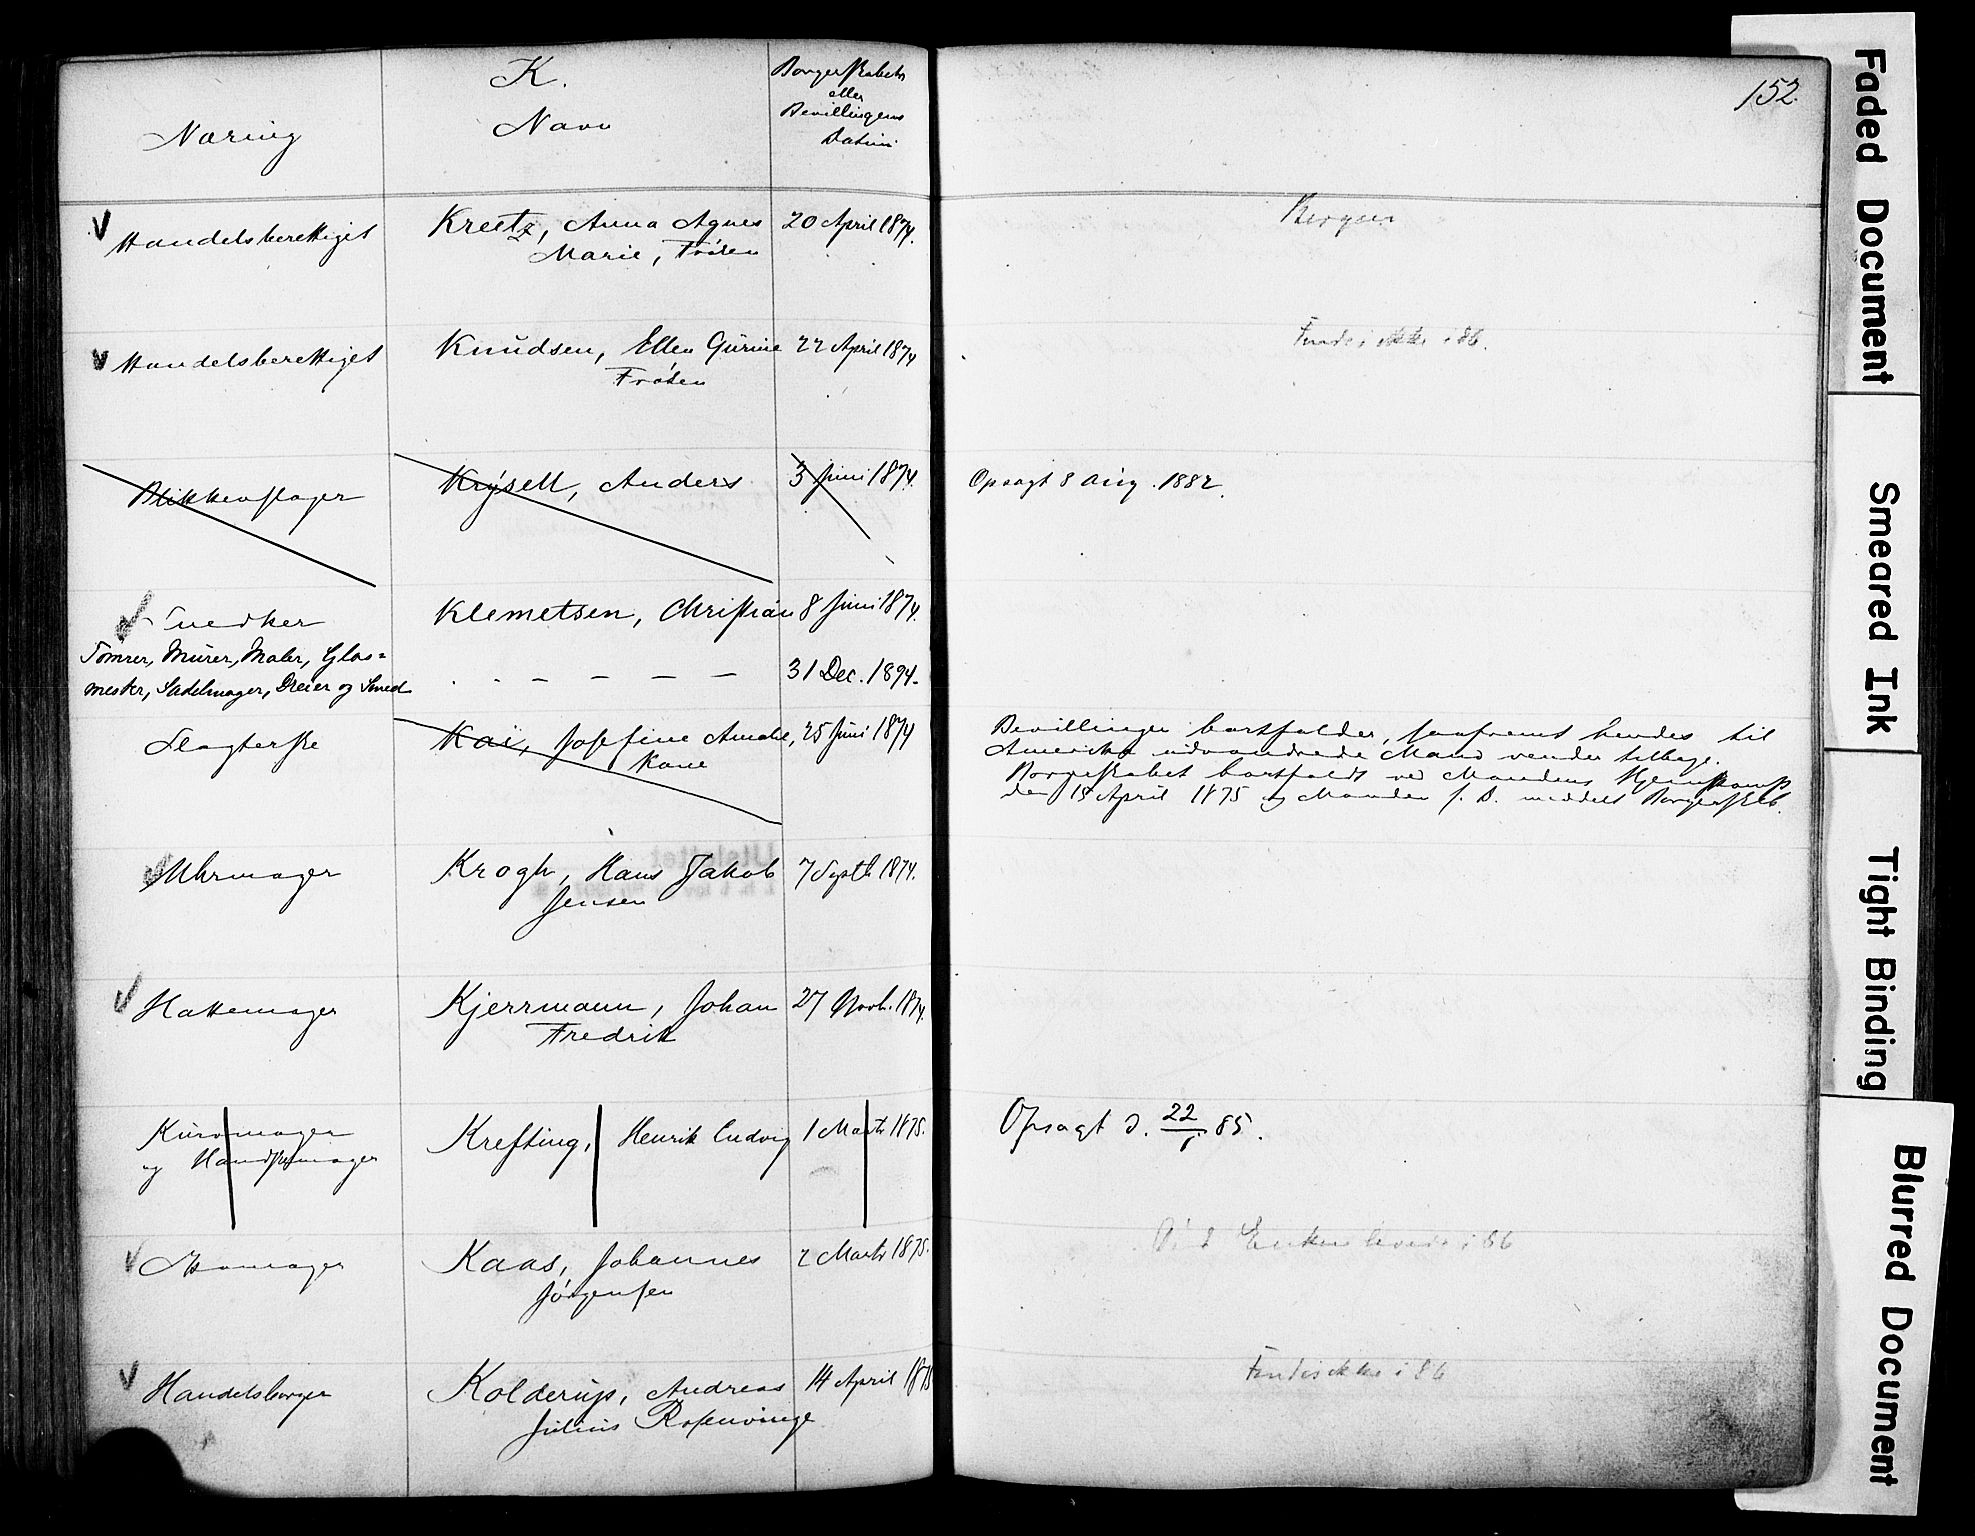 K.
152.
Næring
Navn
Borgerskabets
eller
Bevillingens
Datum
Handelsberettiget
Kreetz, Anna Agnes
Marie, Frøken
20 April 1874.
Bergen
Handelsberettiget
Knudsen, Ellen Gurine
Frøken
22 April 1874
Findes ikke i 86.
Blikkenslager
Krysell, Anders
3 Juni 1874.
Opsagt 8 Aug. 1882.
Snedker
Klemetsen, Christian
8 Juni 1874.
Tømrer, Murer, Maler, Glas=
mester, Sadelmager, Dreier og Smed
- - - - - -
31 Dec. 1894.
Slagterske
Kai, Josefine Amalie,
Kone
25 Juni 1874
Bevillingen bortfalder, saafremt hendes til
Amerika udvandrede Mand vender tilbage.
Borgerskabet bortfaldt ved Mandens Hjemkomst
den 15 April 1875 og Manden s. D. meddelt Borgerskb.
Uhrmager
Krogh, Hans Jakob
Jensen
7 Septb 1874.
Hattemager
Kjerrmann, Johan
Fredrik
27 Novb. 1874.
Kurvmager
og Handskemager
Krefting, Henrik Ludvig
1 Marts 1875.
Opsagt d. 22/ 85.
Skomager
Kaas, Johannes
Jörgensen
2 Marts 1875.
Enken lever i 86
Handelsborger
Kolderup, Andreas
Julius Rosenvinge
14 April 1875
Findes ikke i 86
Faded Document
Smeared Ink
Tight Binding
Blurred Document